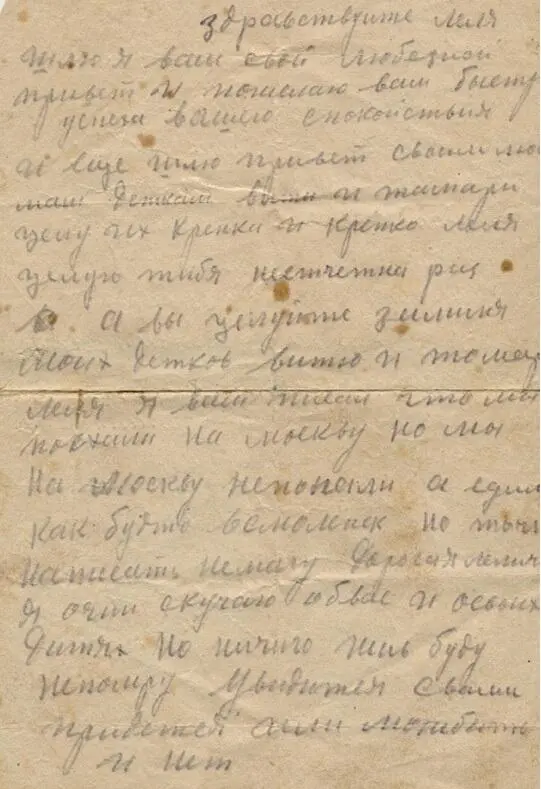 здравствуите леля
шлю я вам свой любезной
привет и пожелаю вам быстр
успеха вашего спокойствия
и еще шлю привет своим мо
маш деткам вити и тамари
целу их крепка и крепко леля
целую тибя несчетна раз
а вы целуйте зимиля
моих детков витю и тома
леля я вам писал что мы
поехали на москву но мы
на Москву непопали а едим
как будто всмоленск но точн
написать немагу Дорогая леличк
я очин скучаю обвас и освоих
Дитях но ничиго жив буду
непомру Увидится своими
придется или можибыть
и нет